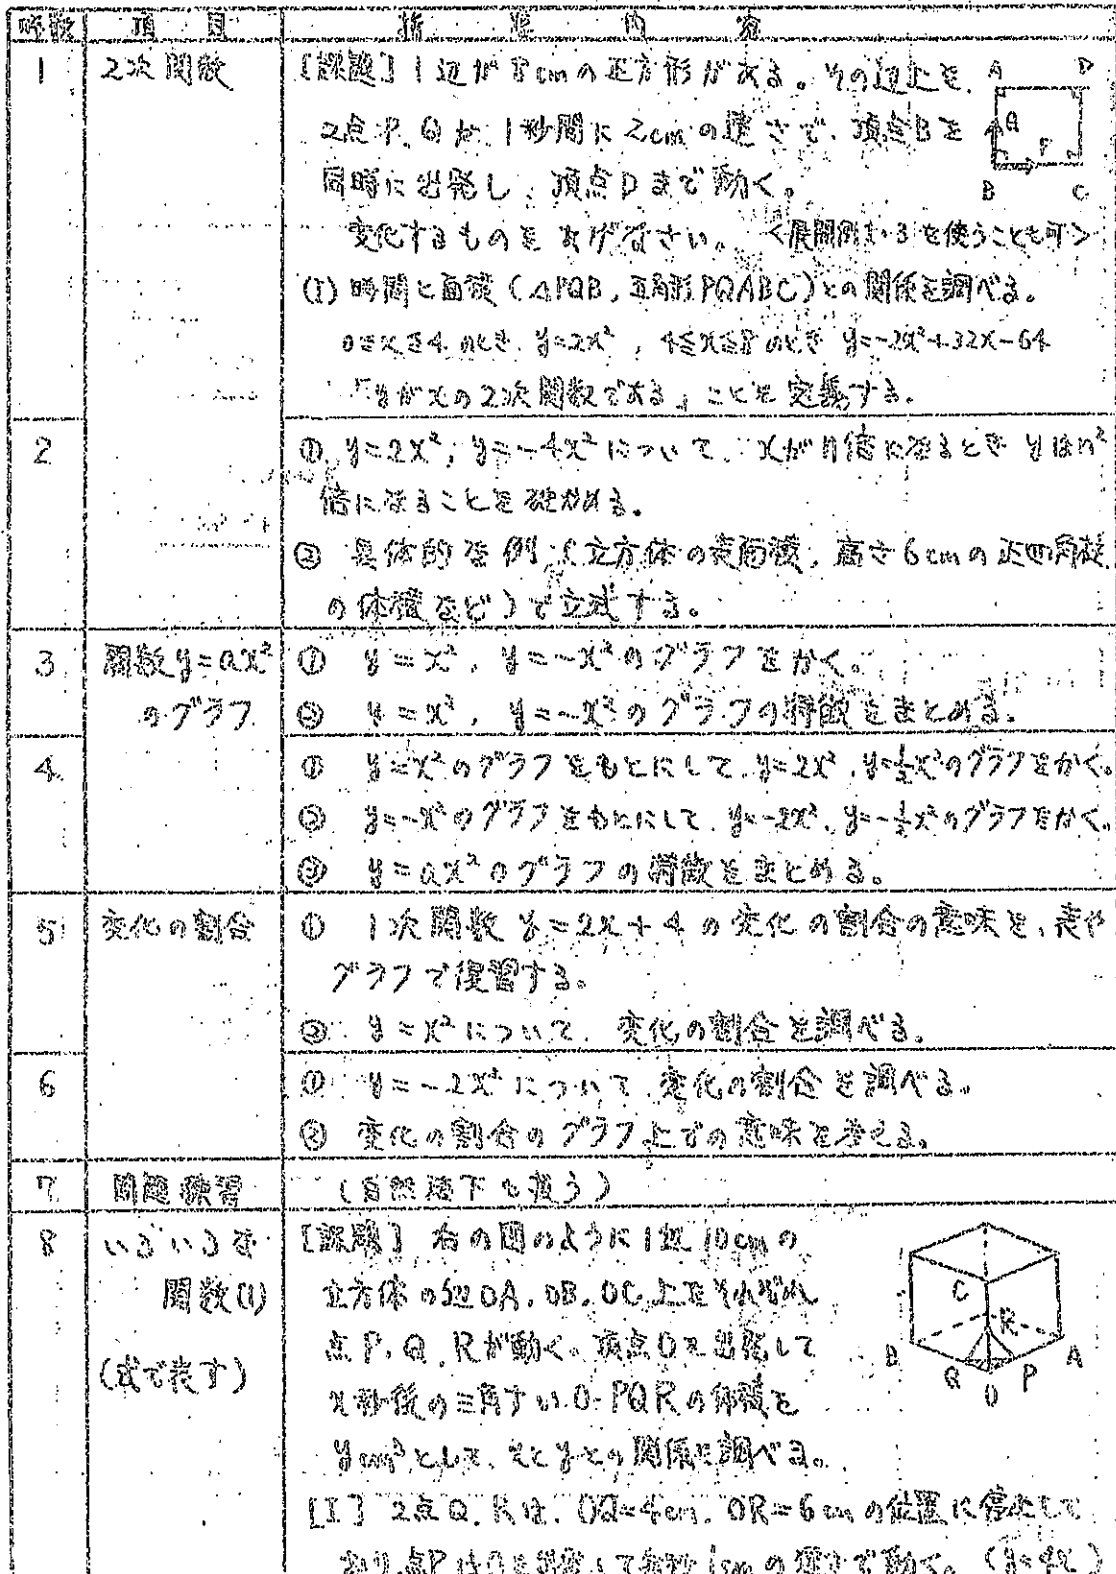 時数 項目 指導内容
1 2次関数 [課題] 1辺が8cmの正方形がある。その辺上を
2点P,Qが、1秒間に2cmの速さで、頂点Bを
同時に出発し、頂点Dまで動く。
変化するものをあげなさい。 <展開例1・3を使うことも可>
A D
Q
P
B C
(I) 時間と面積 (△PQB, 五角形PQABC)との関係を調べる。
0≦x≦4 のとき y=2x², 4≦x≦8 のとき y=-2x²+32x-64
「yがxの2次関数である」ことを定義する。
2 ① y=2x², y=-4x² について、xがn倍になるとき yはn²
倍になることを確かめる。
② 具体的な例 (立方体の表面積, 高さ6cmの正四角柱
の体積など) で立式する。
3 関数y=ax² ① y=x², y=-x²のグラフをかく。
のグラフ ② y=x², y=-x²のグラフの特徴をまとめる。
4 ① y=x²のグラフをもとにして、y=2x², y=½x²のグラフをかく。
② y=-x²のグラフをもとにして、y=-2x², y=-½x²のグラフをかく。
③ y=ax²のグラフの特徴をまとめる。
5 変化の割合 ① 1次関数 y=2x+4 の変化の割合の意味を、表や
グラフで復習する。
② y=x²について、変化の割合を調べる。
6 ① y=-2x² について、変化の割合を調べる。
② 変化の割合のグラフ上での意味を考える。
7 問題練習 (自然落下も扱う)
8 いろいろな [課題] 右の図のように1辺10cmの
関数(1) 立方体の辺OA,OB,OC上をそれぞれ
(式で表す) 点P,Q,Rが動く。頂点Oを出発して
x秒後の三角すいO-PQRの体積を
ycm³として、xとyとの関係を調べる。
C
R
B A
Q P
O
[I] 2点Q,Rは、OQ=4cm, OR=6cmの位置に停止して
おり、点PはOを出発して毎秒1cmの速さで動く。(y=4x)